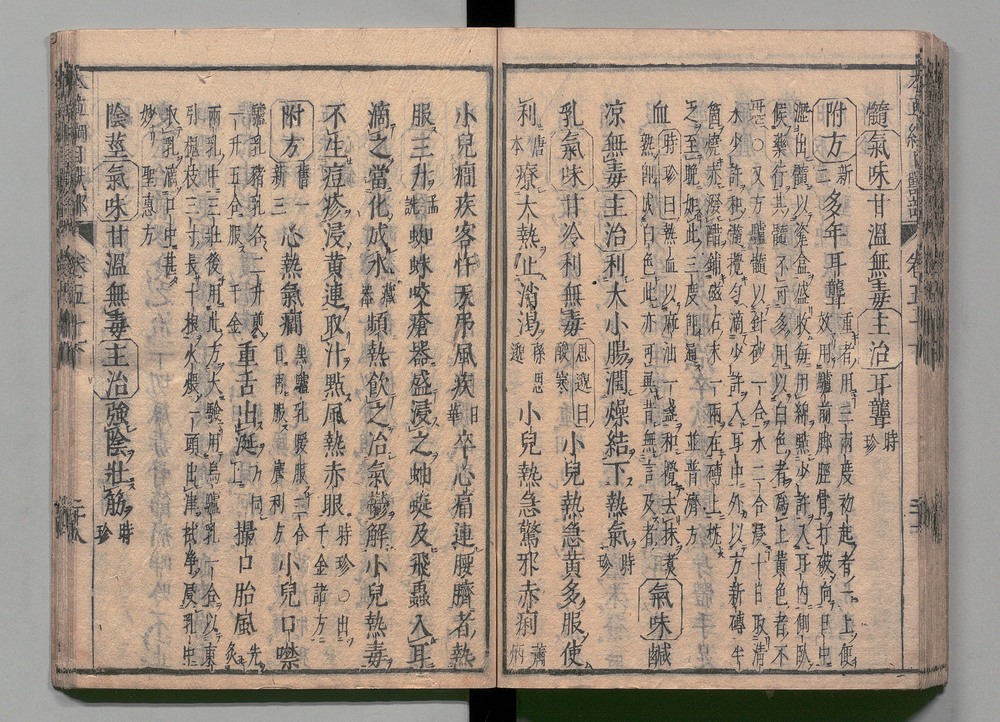 髓氣味甘溫無毒主治耳聾時珍
附方新二多年耳聾重者用三兩度初起者一上便效用驢前脚脛骨打破向日中
瀝出髓以瓷盒盛收每用綿點少許入耳內側臥
候藥行其髓不可多用以白色者爲上黃色者不
堪〇又方驢髓以針砂一合水二合浸十日取清
水少許和髓攪勻滴少許入耳中外以方新磚半
箇燒赤潑醋鋪磁石末一兩在磚上枕之至晚如此三度即通並普濟方
血時珍曰熱血以麻油一盞和攪去沫煮熟即成白色此亦可異昔無言及者氣味鹹
涼無毒主治利大小腸潤燥結下熱氣時珍
乳氣味甘冷利無毒思邈曰酸寒小兒熱急黃多服使
利唐本療大熱止消渴孫思邈小兒熱急驚邪赤痢蕭炳
小兒癇疾客忤天弔風疾日華卒心痛連腰臍者熱
服三升孟詵蜘蛛咬瘡器盛浸之蚰蜒及飛蟲入耳
滴之當化成水藏器頻熱飲之治氣鬱解小兒熱毒
不生痘疹浸黃連取汁點風熱赤眼時珍〇出千金諸方
附方舊一新三心熱氣癇黑驢乳暖服二合日再服廣利方小兒口噤
驢乳豬乳各二升煎一升五合服千金重舌出涎方同上撮口胎風先灸
兩乳中三壯後用此方大驗用烏驢乳一合以東
引槐枝三寸長十根火煨一頭出津拭淨浸乳中
取乳滴口中甚妙聖惠方
陰莖氣味甘溫無毒主治強陰壯筋時珍